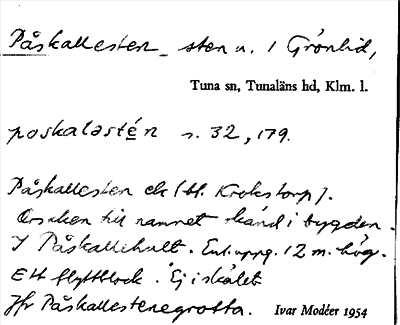 Påskallesten sten n. / Grönlid,
Tuna sn, Tunaläns hd, Klm. l.
poskaləstén s. 32, 179.
Påskallesten ek (bl. Krokstorp).
Orsaken till namnet känd i bygden.
I Påskallehult. Enl. uppg. 12 m. hög.
Ett flyttblock. Ej iskålat
Jfr Påskallestenegrotta. Ivar Modéer 1954